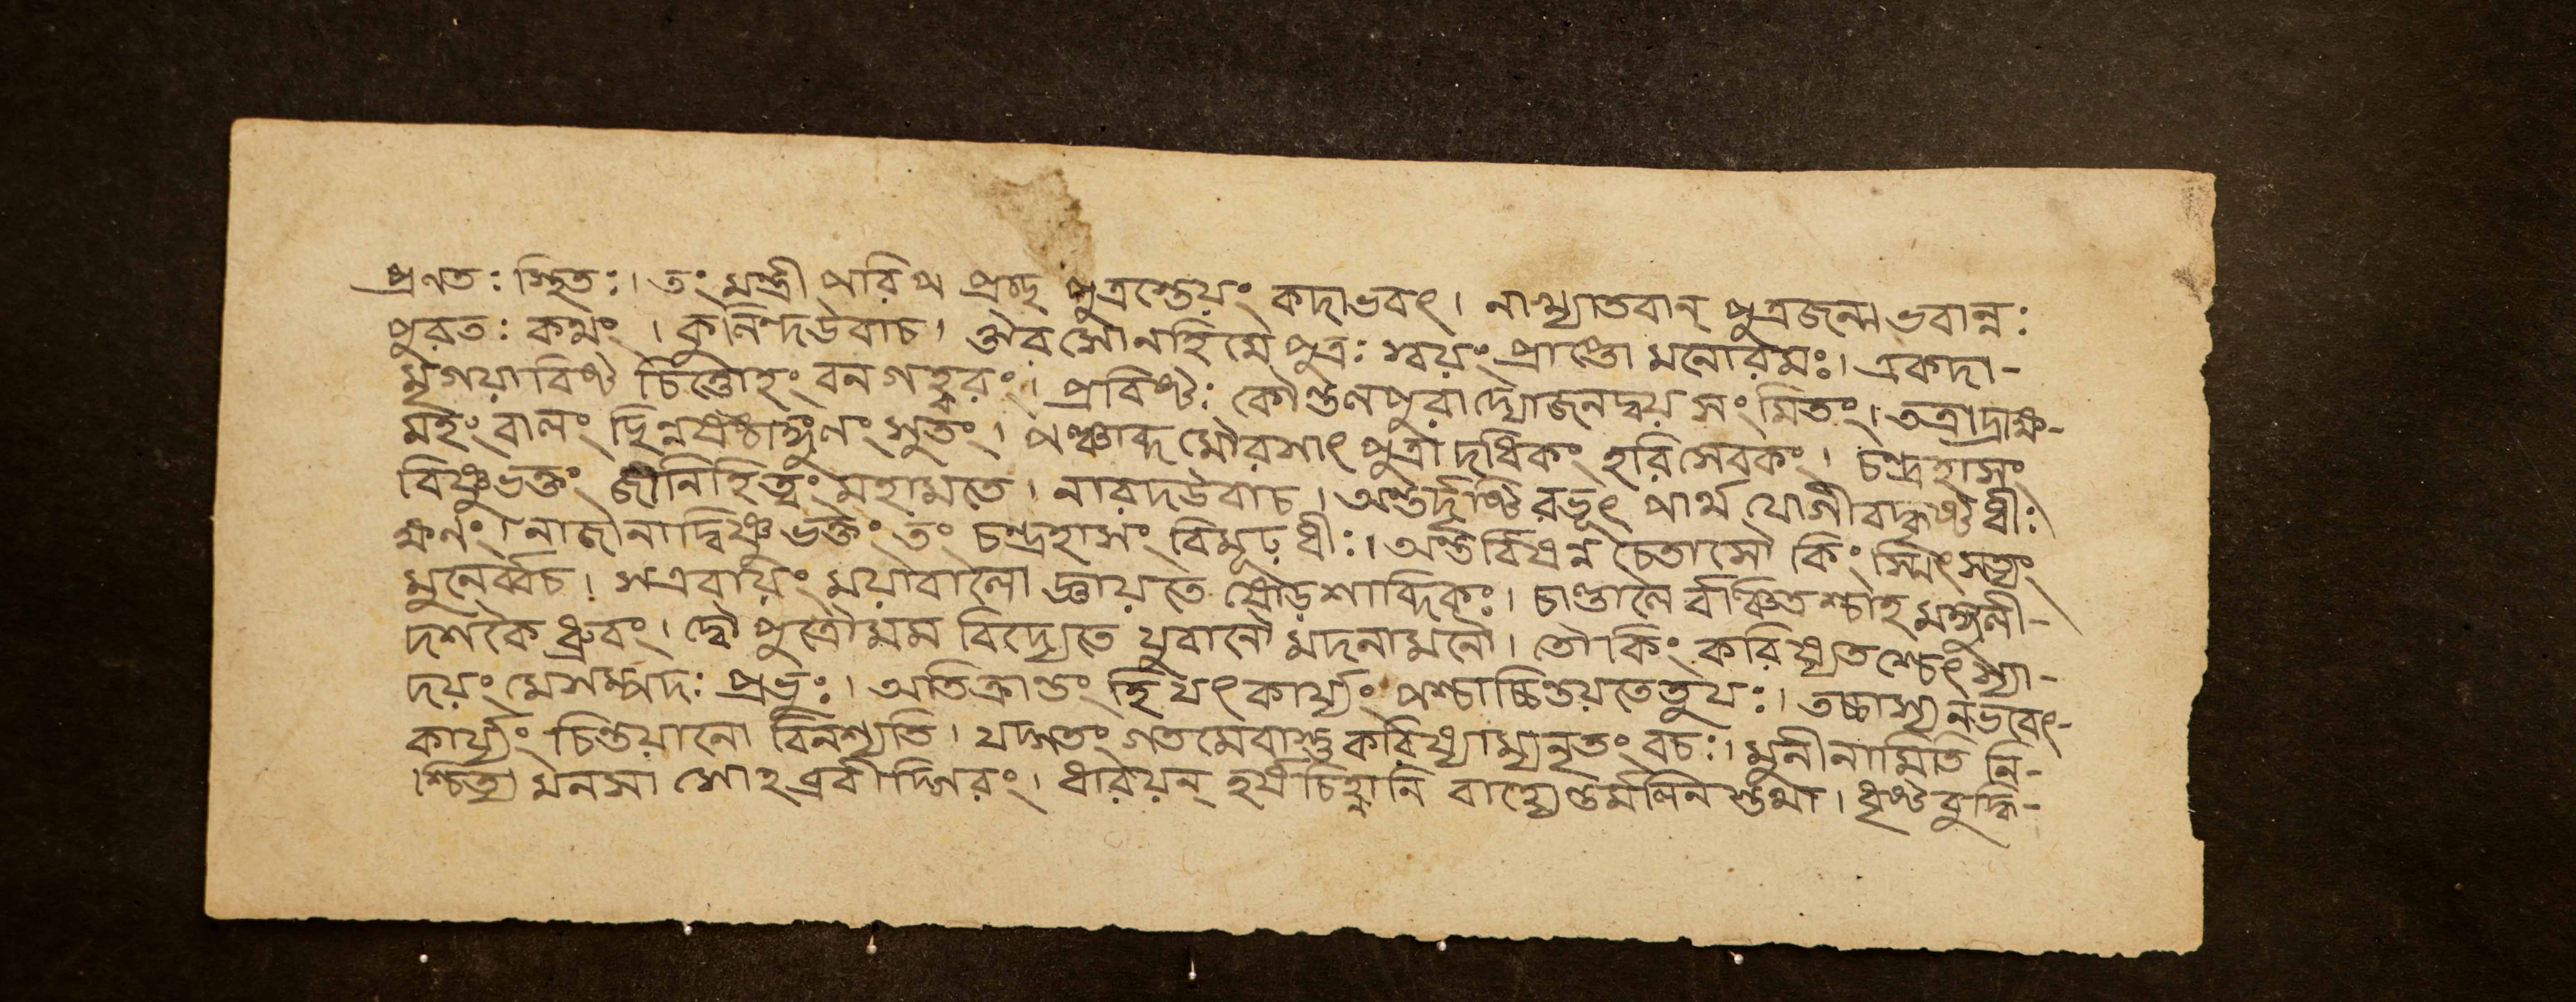 প্রণতঃ স্থিতঃ। তং মন্ত্রী পরিপপ্রচ্ছ পুত্রস্তেয়ং কদাভবৎ। নাখ্যাতবান্ পুত্রজন্ম ভবান্নঃ
পুরতঃ কথং। কুলিন্দউবাচ। ঔরসোনহিমেপুত্রঃ স্বয়ং প্রাপ্তো মনোরমঃ। একদা-
মৃগয়াবিষ্ট চিত্তোহং বনগহ্বরং। প্রবিষ্টঃ কৌণ্ডলপুরাদ্যোজনদ্বয় সংমিতং। তত্রাদ্রাক্ষ-
মহং বালং ছিন্নষষ্ঠাঙ্গুলং সুতং। পঞ্চাব্দমৌরসাৎ পুত্রাদধিকং হরিসেবকং। চন্দ্রহাসং
বিষ্ণুভক্তং জানিহিত্বং মহামতে। নারদউবাচ। অন্তর্দৃষ্টিরভূৎ পার্থ যোগীবদ্ধৃষ্টধীঃ
ক্ষনং। নাজানাদ্বিষ্ণুভক্তং তং চন্দ্রহাসং বিমূঢ়ধীঃ। অন্তর্বিষন্ন চেতাসৌ কিং স্মিৎসত্যং
মুনের্ব্বচ। সএবায়ং ময়াবালো জ্ঞায়তে ষোড়শাব্দিকঃ। চাণ্ডালৈ র্বাঞ্চিতশ্চাহমঙ্গুলী-
দর্শকৈ ধ্রুবং। দ্বৌ পুত্রৌমম বিদ্যেতে যুবানৌ মদনামলৌ। তৌকিং করিষ্যতশ্চেৎস্যা-
দয়ং মেসম্পদঃ প্রভুঃ। অতিক্রান্তং হি যৎকার্য্যং পশ্চাচ্চিন্তয়তেতুযঃ। তচ্চাস্যনভবেৎ-
কার্য্যং চিন্তয়ানো বিনশ্যতি। যদ্গতং গতমেবাস্তু করিষ্যাম্যনৃতং বচঃ। মুনীনামিতি নি-
শ্চিত্য মনসা সোহব্রবীদ্গিরং। ধারয়ন্ হর্ষচিহ্নানি বাহ্যেন্তর্মলিনস্তথা। ধৃষ্টবুদ্ধি-